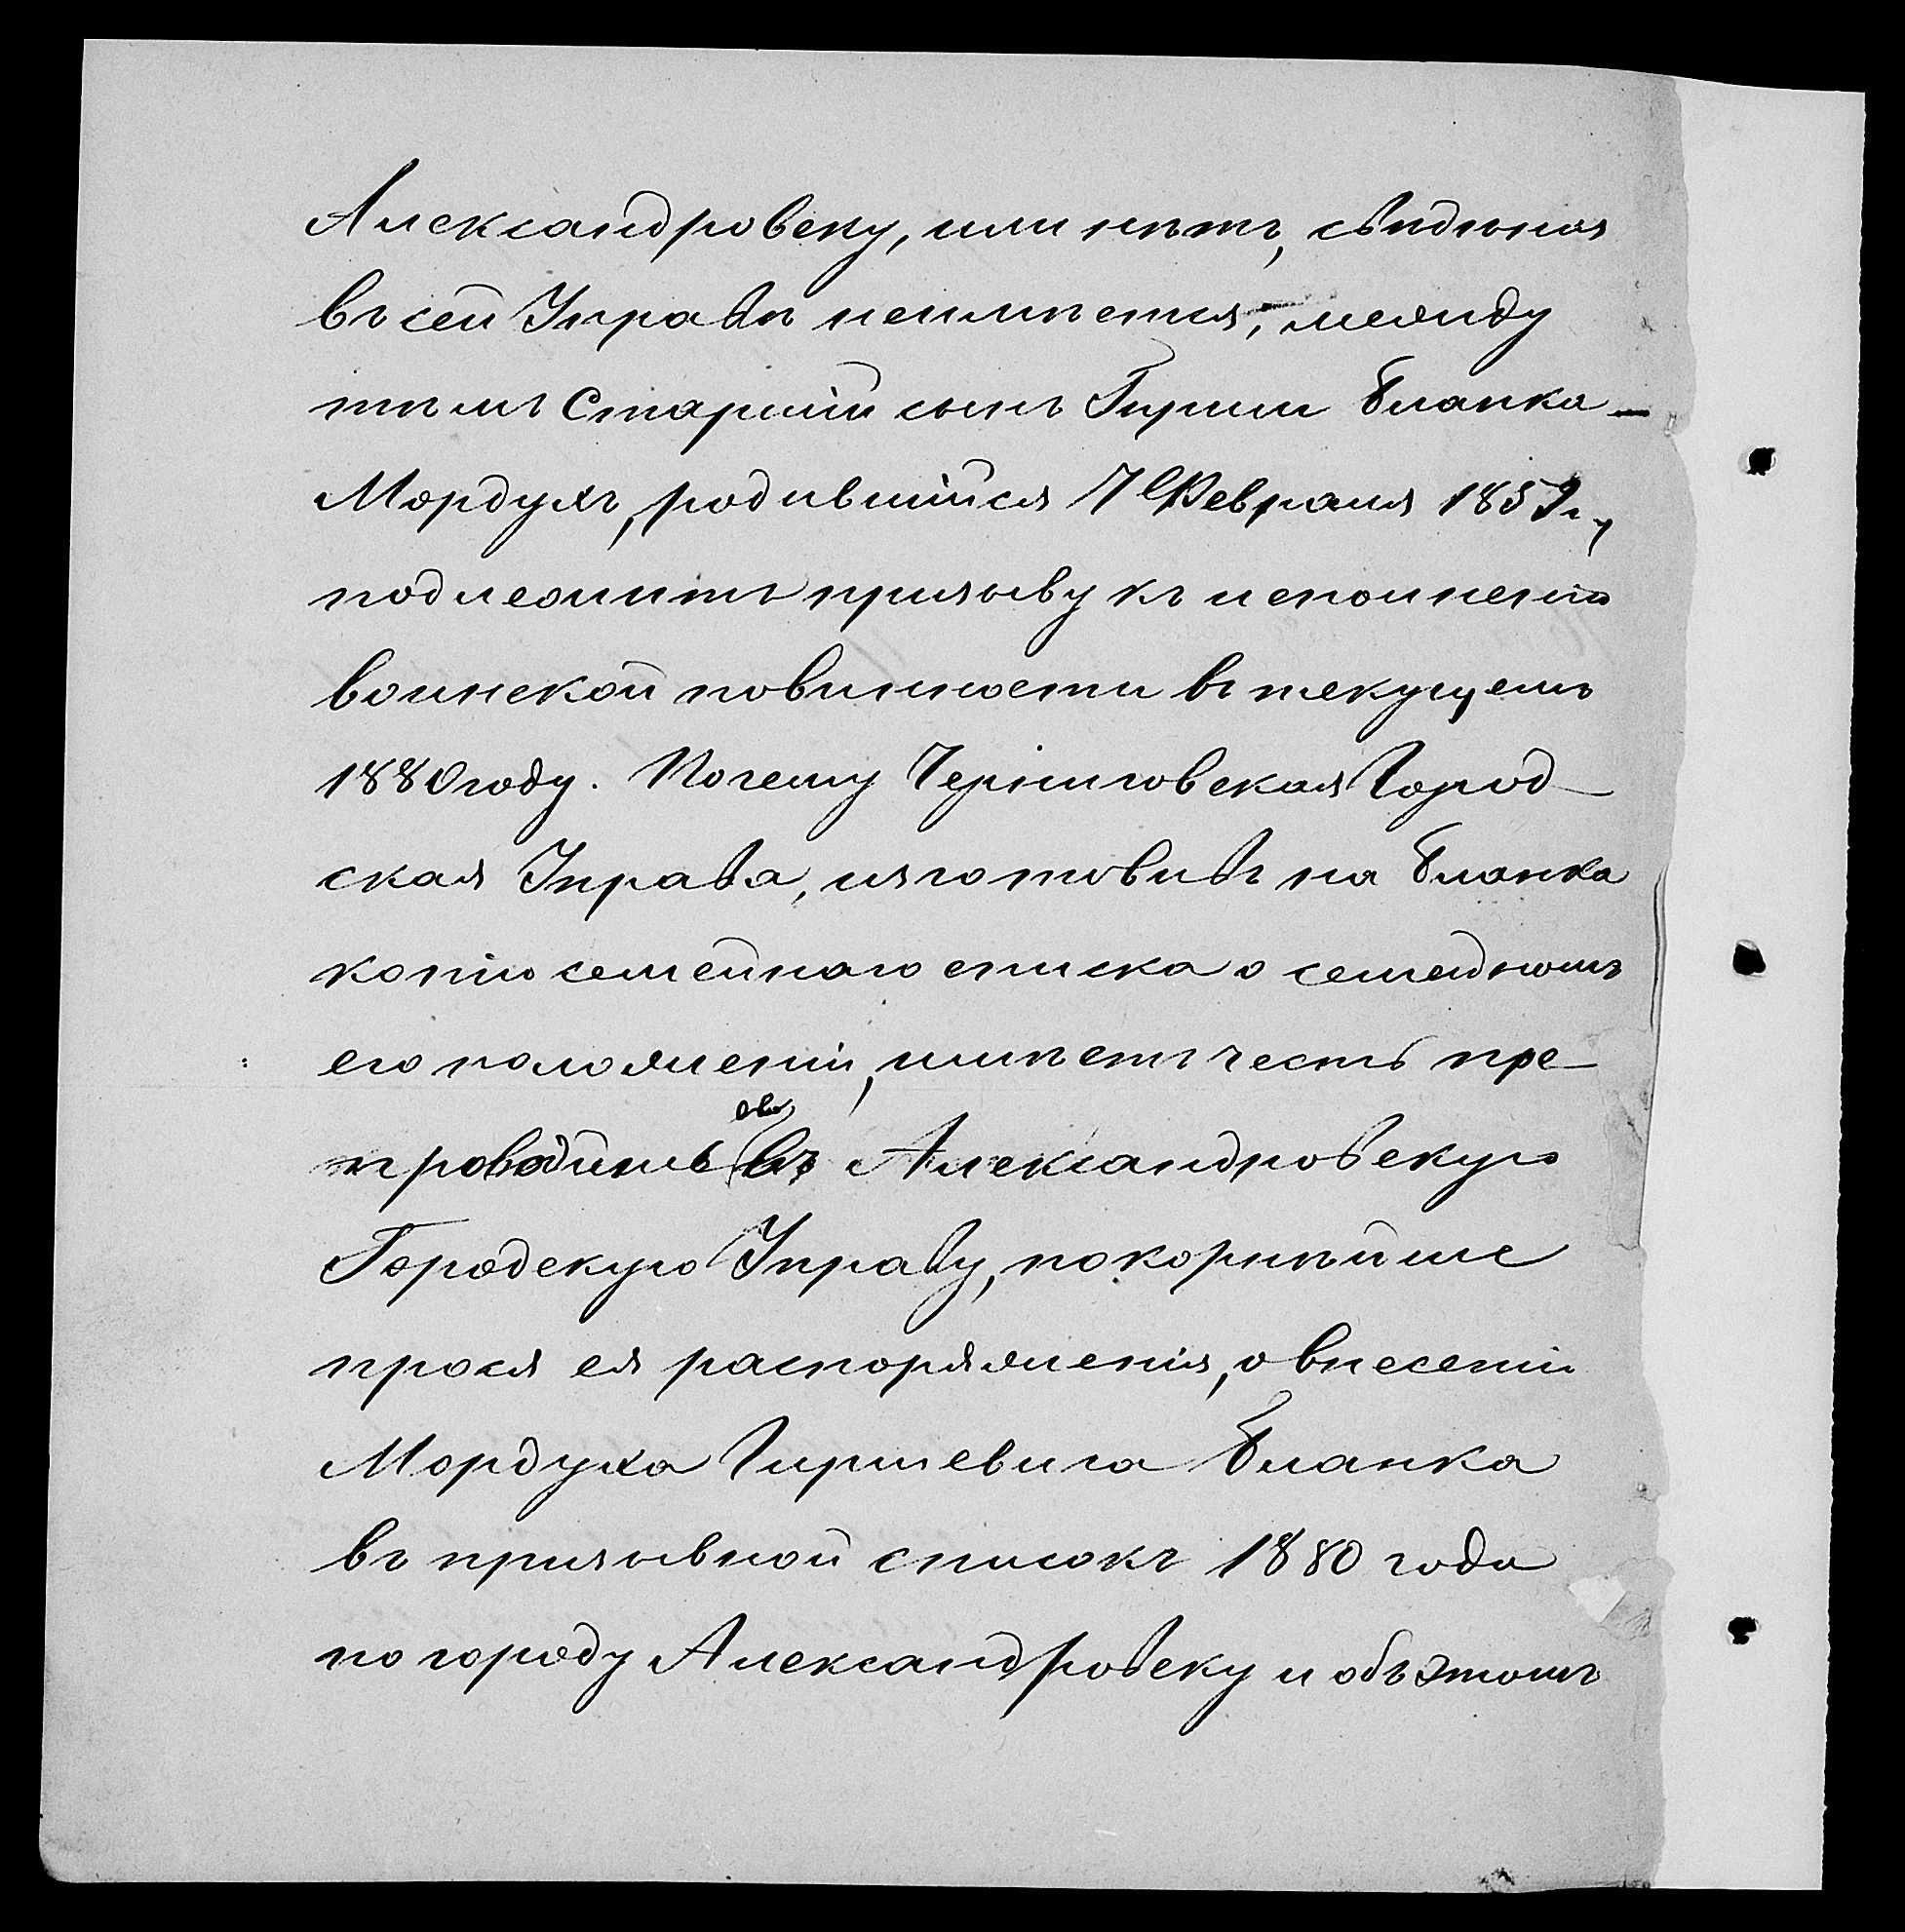 Александровску, или нѣтъ, свѣдѣнія
въ сей Управѣ неимѣется, между
тѣмъ Старшій сынъ Гирши Бланка –
Мордухъ, родившійся 7 Февраля 1859 г.,
подлежитъ призыву къ исполненію
воинской повинности въ текущемъ
1880 году. Почему Черниговская Город-
ская Управа, изготовивъ на Бланка
копію семейнаго списка о семейномъ
его положеніи, имѣетъ честь пре-
проводить въ Александровскую
Городскую Управу, покорнѣйше
прося ея распоряженія, о внесеніи
Мордуха Гиршевича Бланка
въ призывной списокъ 1880 года
по городу Александровску и объ этомъ